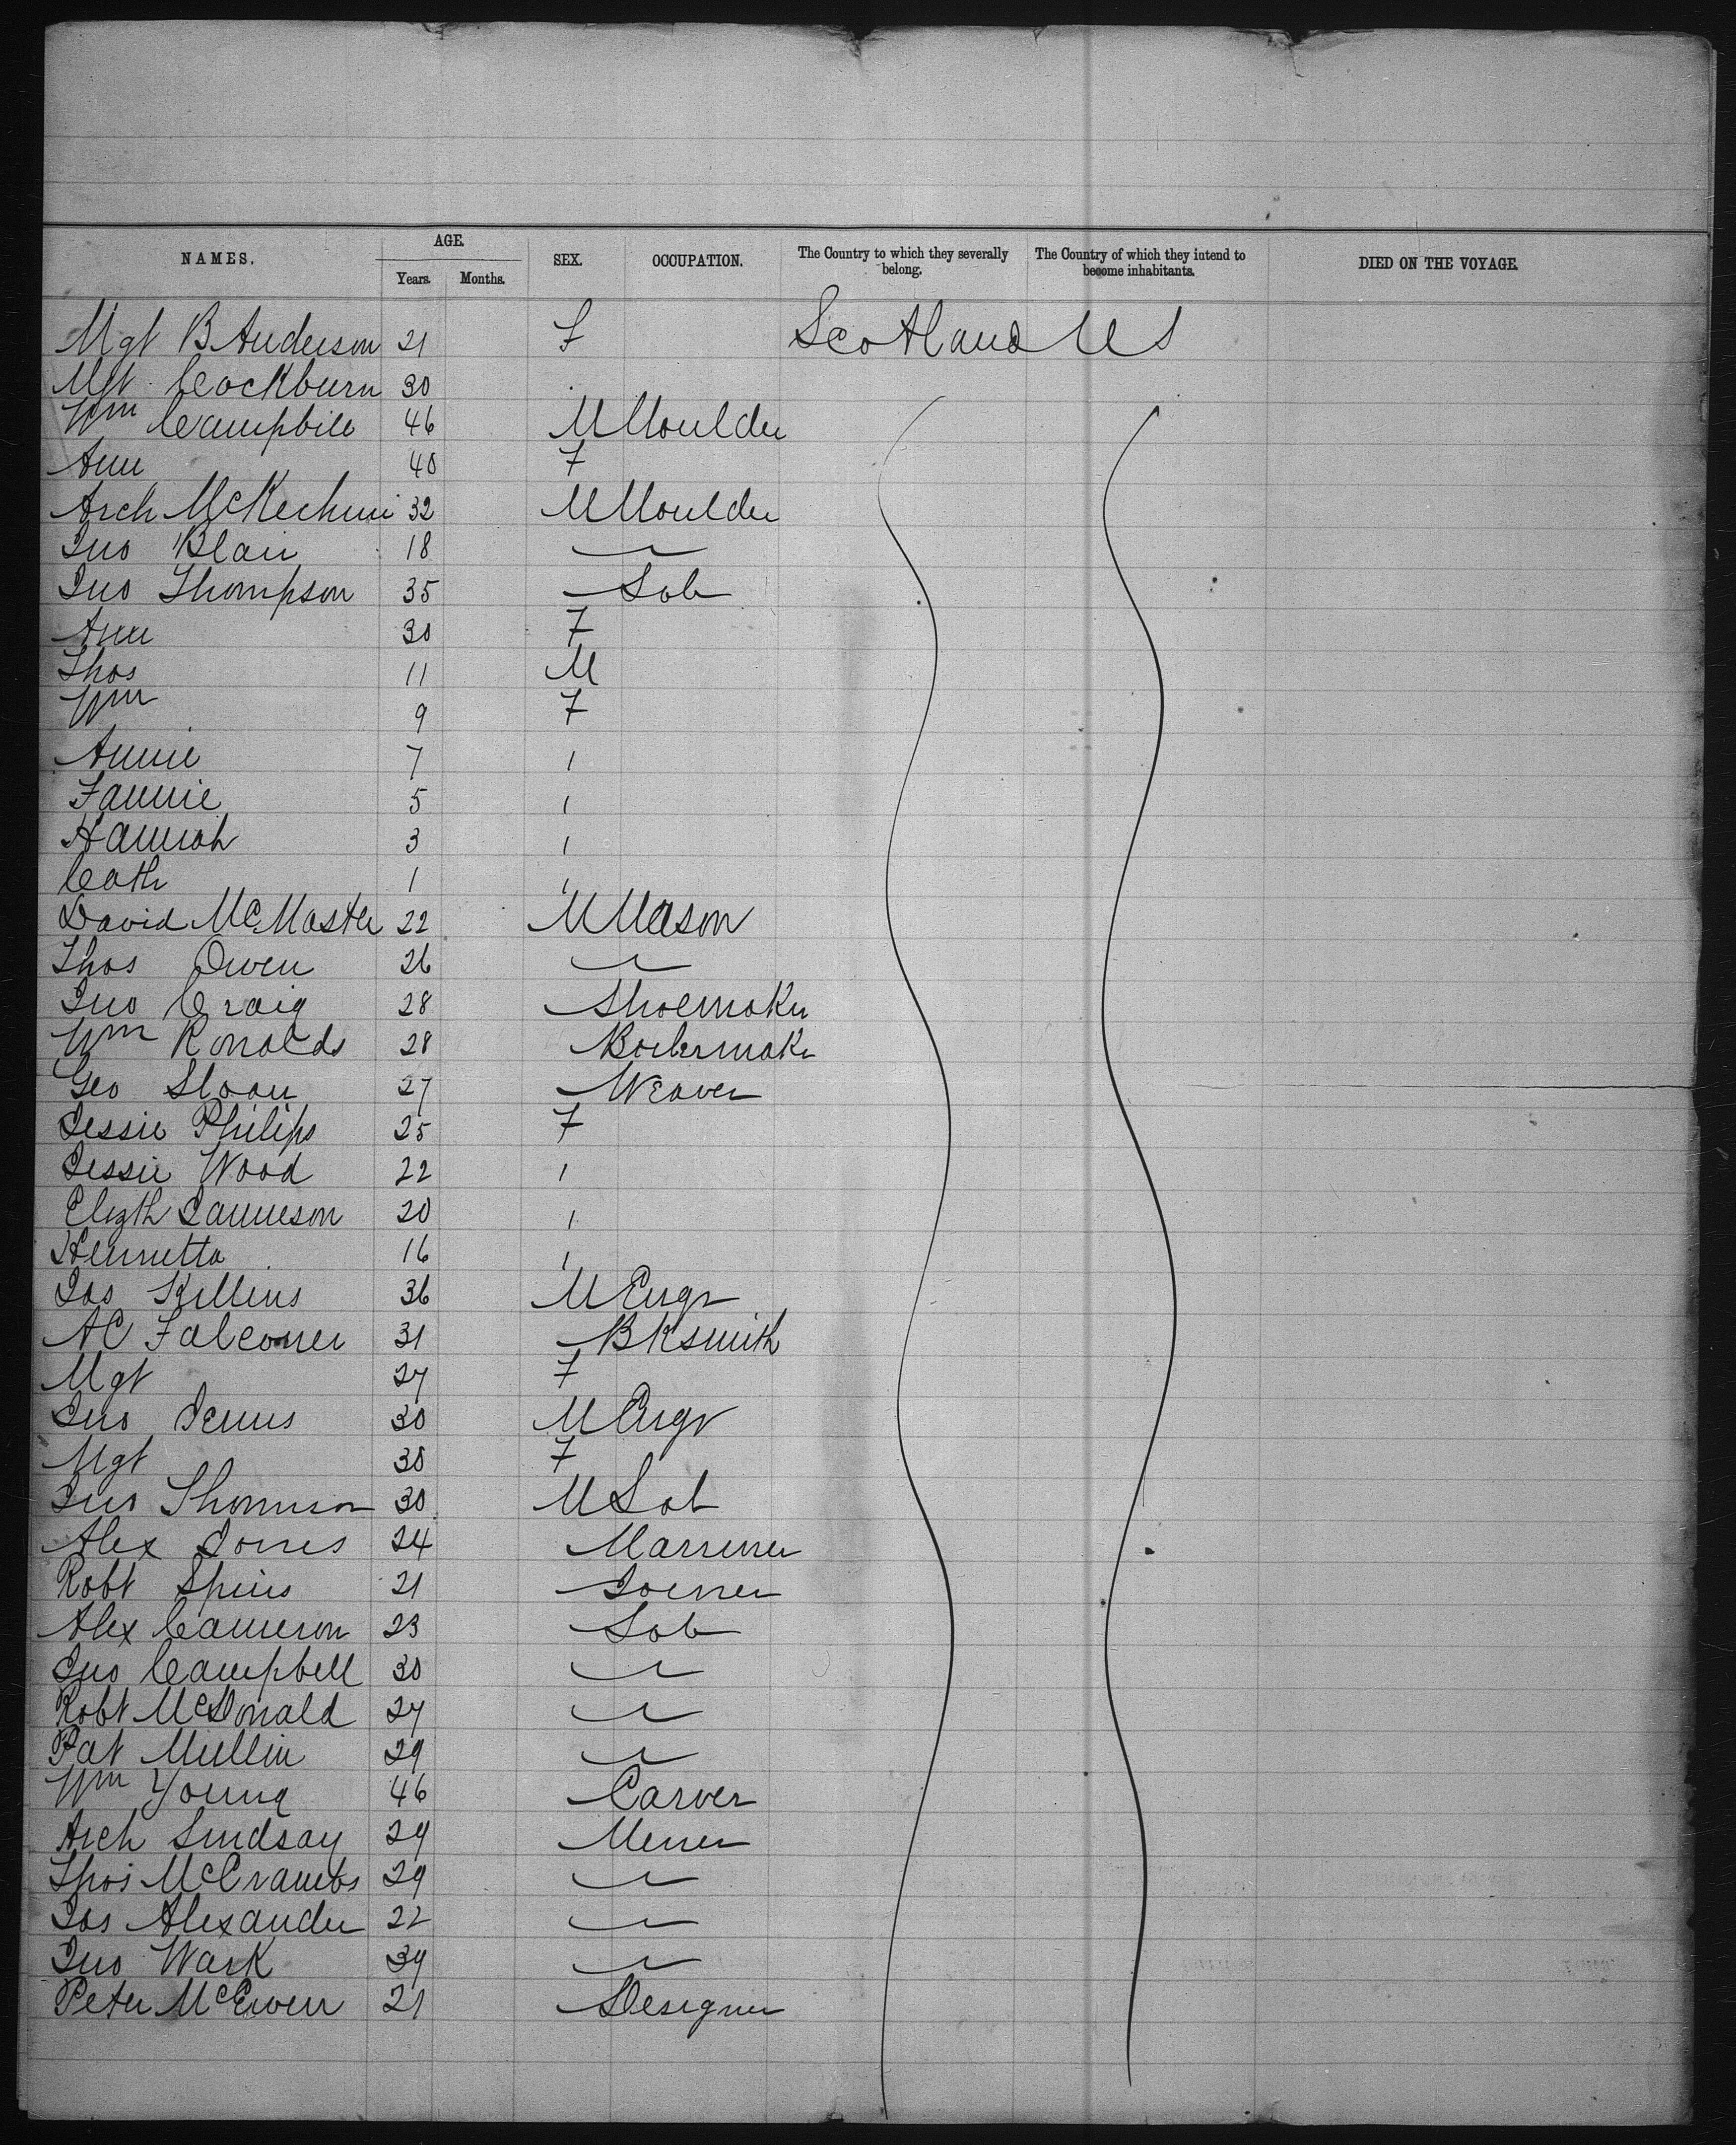 NAMES. AGE. Years. Months. SEX. OCCUPATION. The Country to which they severally belong. The Country of which they intend to become inhabitants. DIED ON THE VOYAGE.
Mgt B Anderson 21 F Scotland US
Mgt Cockburn 30
Wm Campbell 46 M Moulder
Ann 40 F
Arch McKechnie 32 M Moulder
Jno Blair 18
Jno Thompson 35 Lab
Ann 30 F
Thos 11 M
Wm 9 F
Annie 7 1
Fannie 5 1
Hannah 3 1
Cath 1 1
David McMaster 22 M Mason
Thos Owen 26
Jno Craig 28 Shoemaker
Wm Ronalds 28 Boilermaker
Geo Sloan 27 Weaver
Jessie Philips 25 F
Jessie Wood 22 1
Elizth Jamieson 20 1
Henrietta 16 1
Jas Killens 36 M Engr
AC Falconer 31 BKsmith
Mgt 27 F
Jno 30 M Engr
Mgt 30 F
Jno Thomson 30 M Lab
Alex Jones 24 Marriner
Robt 21 Joiner
Alex Cameron 23 Lab
Jno Campbell 30
Robt McDonald 27
Pat Mullin 29
Wm Young 46 Carver
Arch Lindsay 29 Miner
Thos 29
Jas Alexander 22
Jno Wark 39
Peter McEwen 21 Designer